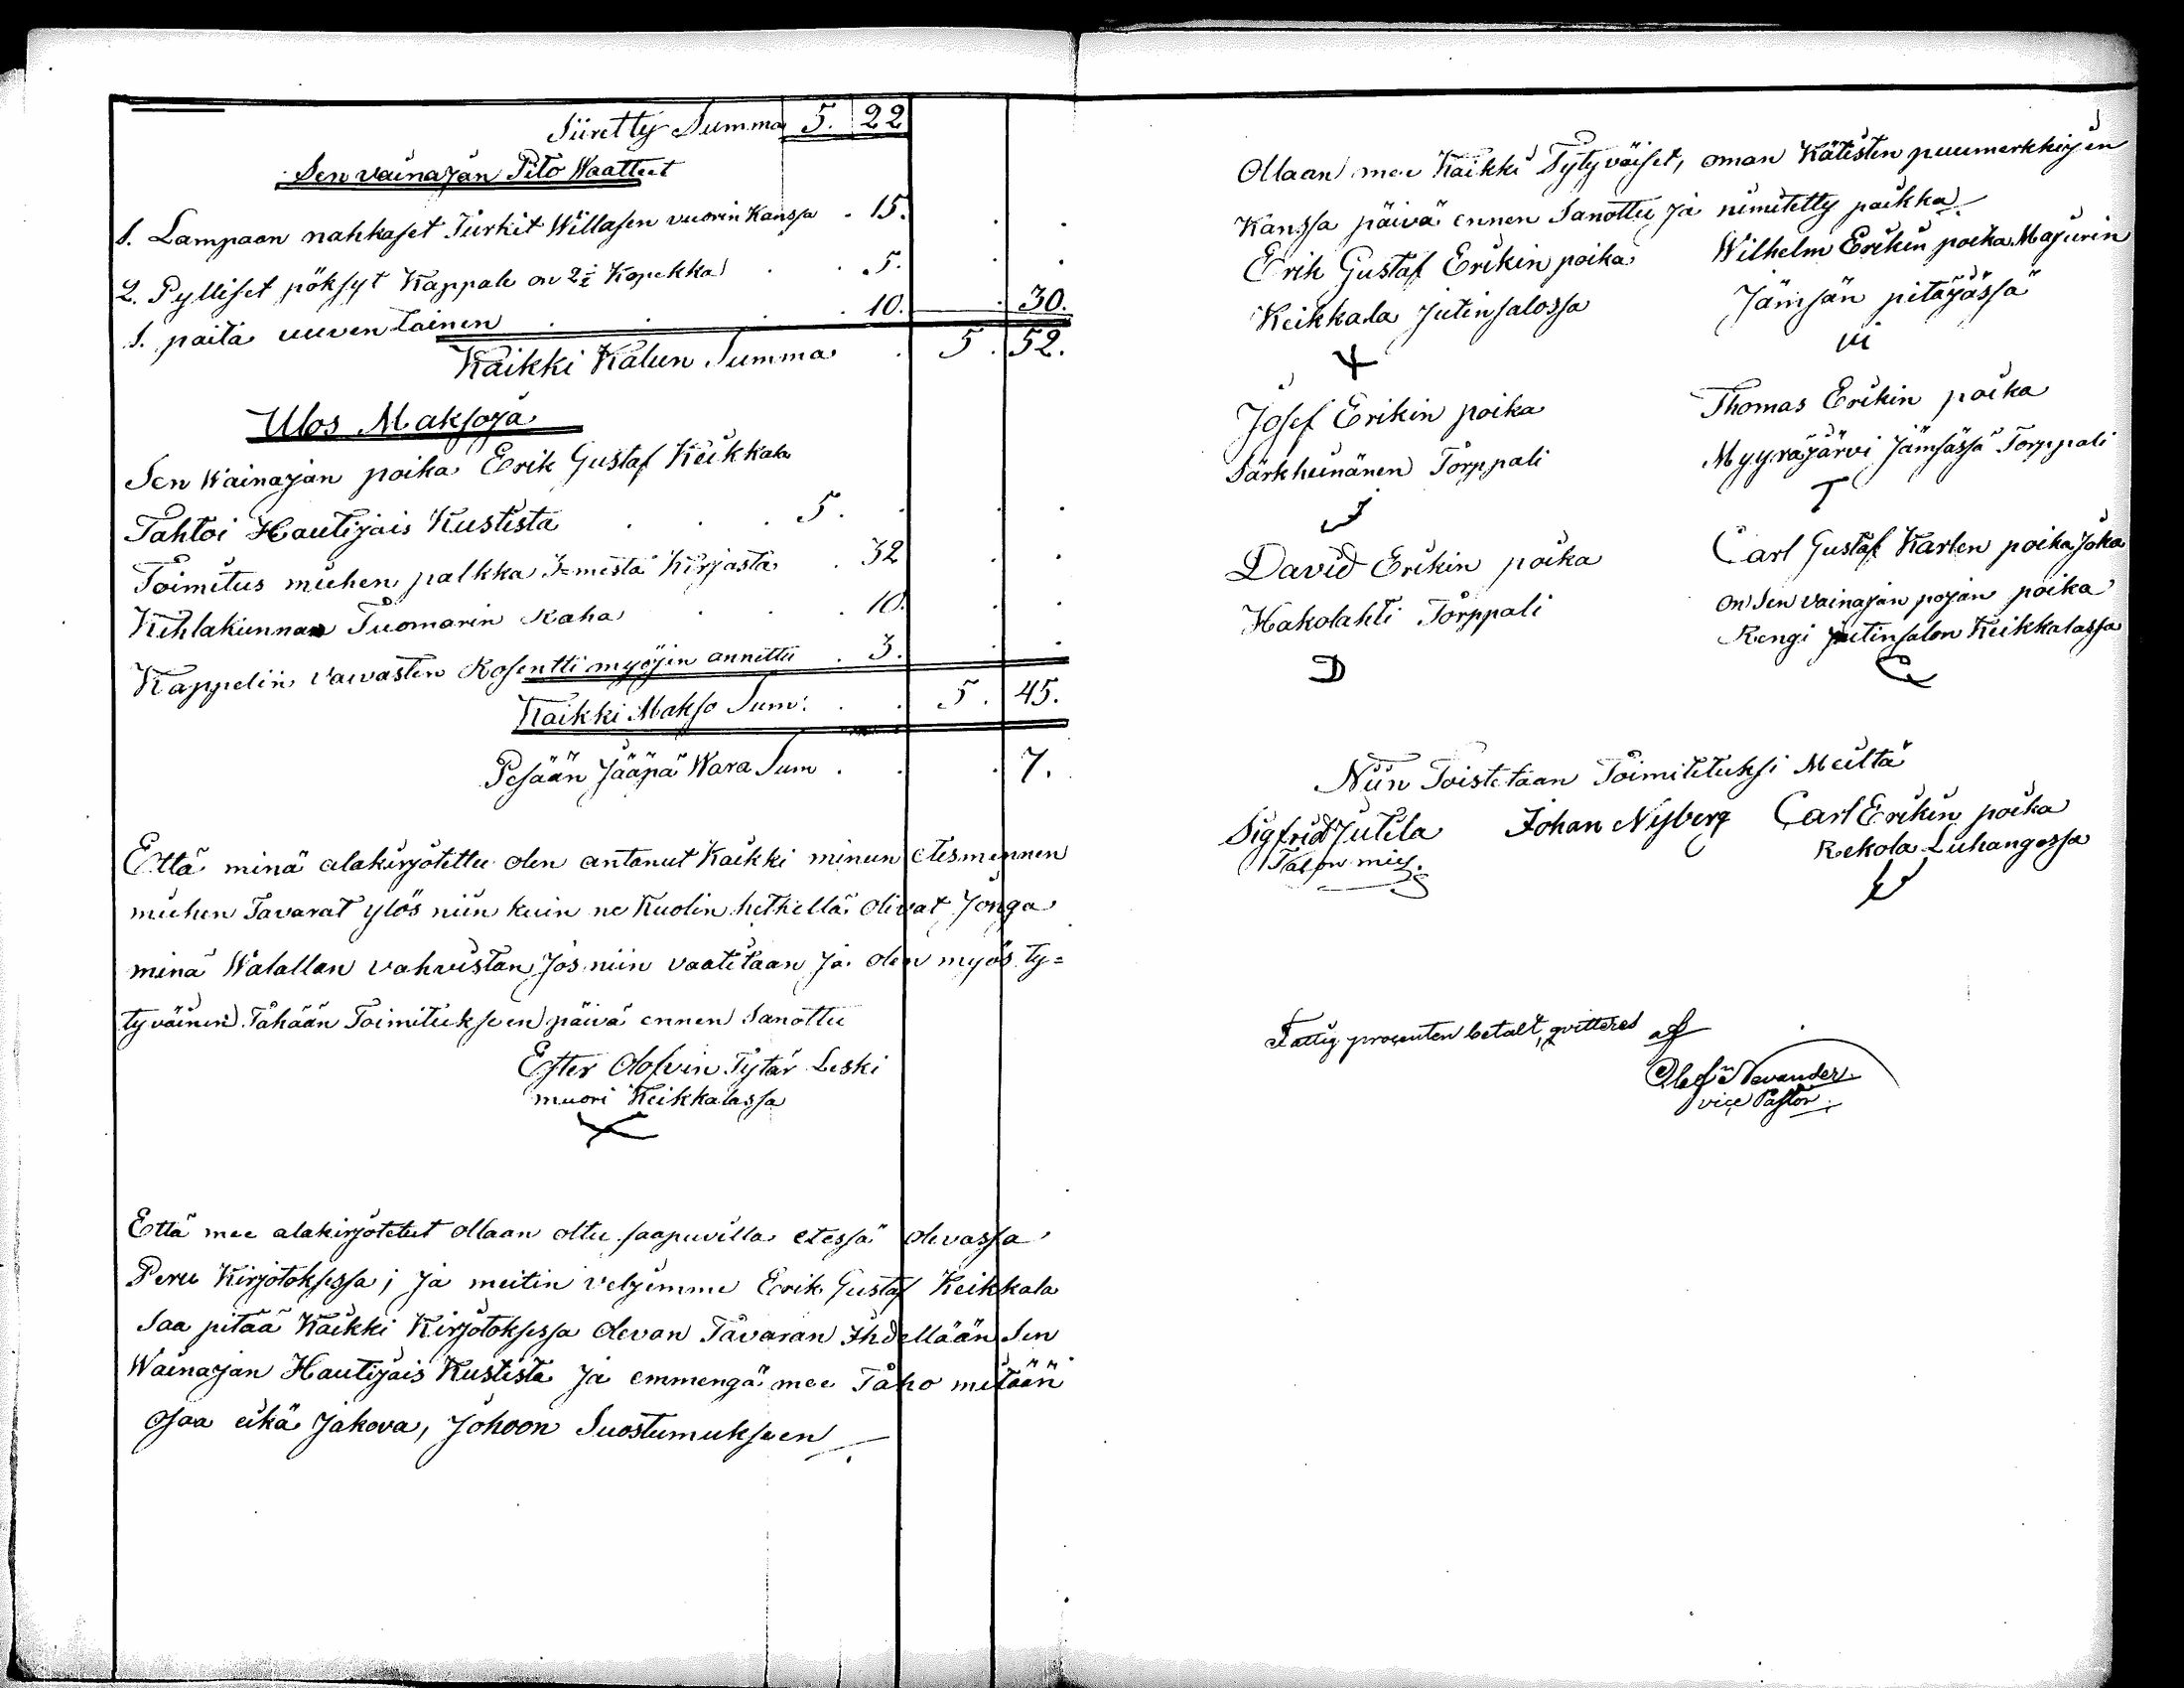 Siiretty Summa 5. 22
Sen vainajan Pito Waatteet
1. Lampaan nahkaset Turkit Willasen vuorin Kanssa . 15. . .
2. Pylliset pöksyt Kappale on 2½ Kopekka . . 5. . .
1. paita uuven lainen . . . . 10. . 30.
Kaikki Kalun Summa . 5. 52.
Ulos Maksoja
Sen Wainajan poika Erik Gustaf Keikkala
Tahtoi Hautijais Kustista . . . 5. . . .
Toimitus miehen palkka 3=mesta Kirjasta . 32 . .
Kihlakunnan Tuomarin Raha . . . 10. . .
Kappelin vaivasten Rosentti myöjen annettu . 3. . .
Kaikki Makso Sum: . . 5. 45.
Pesään Jääpä Wara Sum . . . 7.
Että minä alakirjotettu olen antanut Kaikki minun etesmennen
miehen Tavarat ylös niin kuin ne Kuolin hetkellä olivat Jonga
minä Walallan vahvistan Jos niin vaatitaan Ja olen myös ty=
tyväinen Tähään Toimitukseen päivä ennen Sanottu
Ester Olofvin Tytär Leski
muori Keikkalassa
Että mee alakirjotetut ollaan oltu saapuvilla etessä olevassa
Peru Kirjotoksessa; Ja meitin veljemme Erik Gustaf Keikkala
Saa pitää Kaikki Kirjotoksessa olevan Tavaran Ihdellään Sen
Wainajan Hautijais Kustista Ja emmengä mee Taho mitään
osaa eikä Jakova, Johoon Suostumukseen
Ollaan mee Kaikki Tytyväiset, oman Kätisten puumerkkijen
Kanssa päivä ennen Sanottu Ja nimitetty paikka
Erik Gustaf Erikin poika Wilhelm Erikin poika Majurin
Keikkala Jutinsalossa Jämsän pitäjässä
Josef Erikin poika Thomas Erikin poika
Särkheinänen Torppali Myyräjärvi Jämsässä Torppali
J T
David Erikin poika Carl Gustaf Karlen poika Joka
Hakolahti Torppali on Sen vainajan pojan poika
Rengi Jutinsalon Keikkalassa
D C
Niin Toistetaan Toimitetuksi Meiltä
Sigfrid Jutila Johan Nyberg Carl Erikin poika
Talon mies. Rekola Luhangassa
Fattig procenten betalt, qvitteras af
Olof Nevander
vice Pastor.